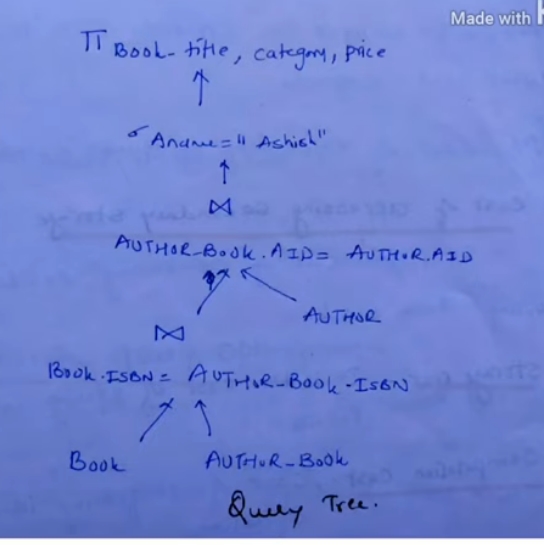 Made with
π Book-title, category, price
σ Aname="Ashish"
⋈
AUTHOR-Book.AID= AUTHOR.AID
AUTHOR
⋈
Book.ISBN= AUTHOR-Book.ISBN
Book AUTHOR-Book
Query Tree.